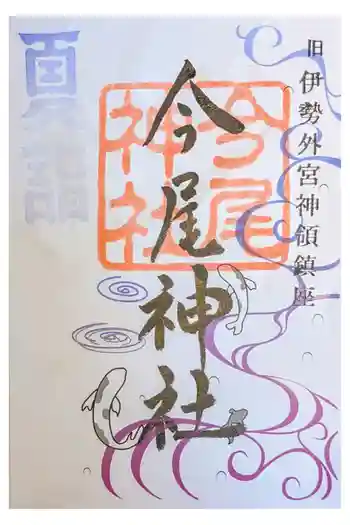 旧伊勢外宮神領鎮座
今尾神社
今尾
神社